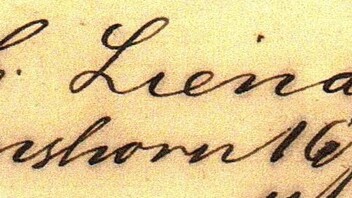 . Liena
nshorn 16